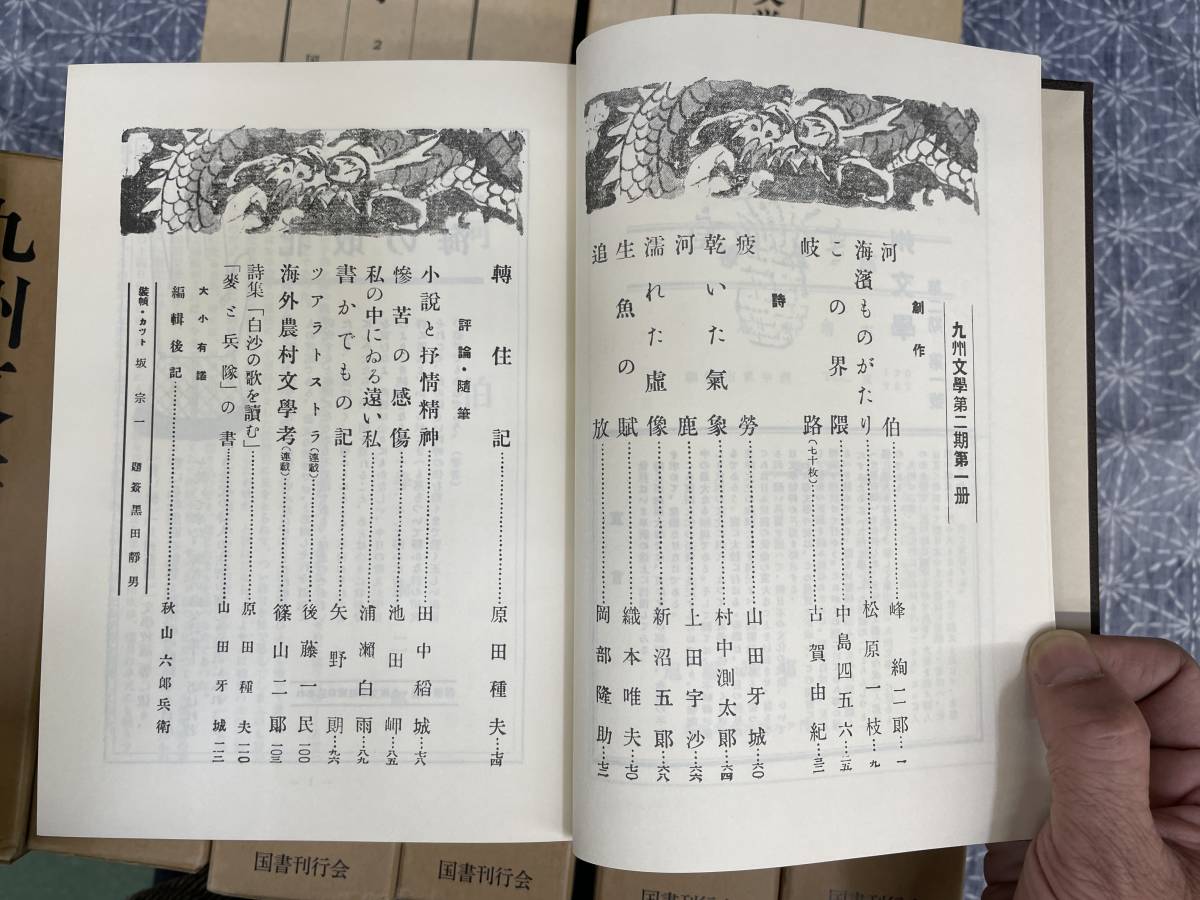 九州文學第二期第一册
創作
河伯………峰絢二郎…一
海濱ものがたり………松原一枝…九
この界隈………中島四五六…二五
岐路(七十枚)………古賀由紀…三二
詩
疲勞………山田牙城…六〇
乾いた氣象………村中測太郎…六四
河鹿………上田宇沙…六六
濡れた虛像………新沼五郎…六八
生魚の賦………織本唯夫…七〇
追放………岡部隆助…七二
轉住記………原田種夫…七四
評論・隨筆
小說と抒情精神………田中稻城…七八
慘苦の感傷………池田岬…八五
私の中にゐる遠い私………浦瀨白雨…八九
書かでもの記………矢野朗…九六
ツアラトストラ(連載)………後藤一民…一〇〇
海外農村文學考(連載)………篠山二郎…一〇三
詩集「白沙の歌を讀む」………原田種夫…一一〇
「麥と兵隊」の書………山田牙城…一一三
大小有議
編輯後記………秋山六郎兵衛
裝幀・カット 坂宗一 題簽 黑田靜男
九州
2
国書刊行会
国書刊行会
国書刊行会
国書刊行会